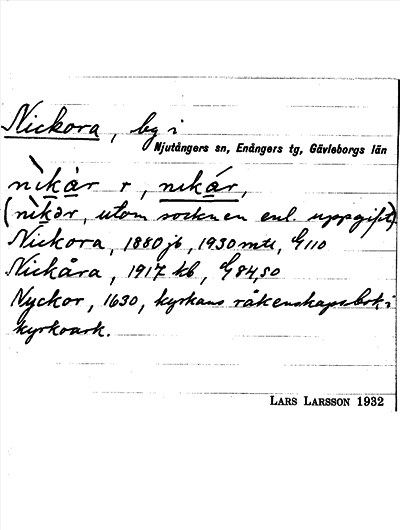 Nickora, by i
Njutångers sn, Enångers tg, Gävleborgs län
nìkàr r, nikár,
(nìkər, utom socknen enl. uppgift)
Nickora, 1880 jb, 1930 mtl, G110
Nickåra, 1917 kb, G 84,80
Nyckor, 1630, kyrkans räkenskapsbok i
kyrkoark.
LARS LARSSON 1932